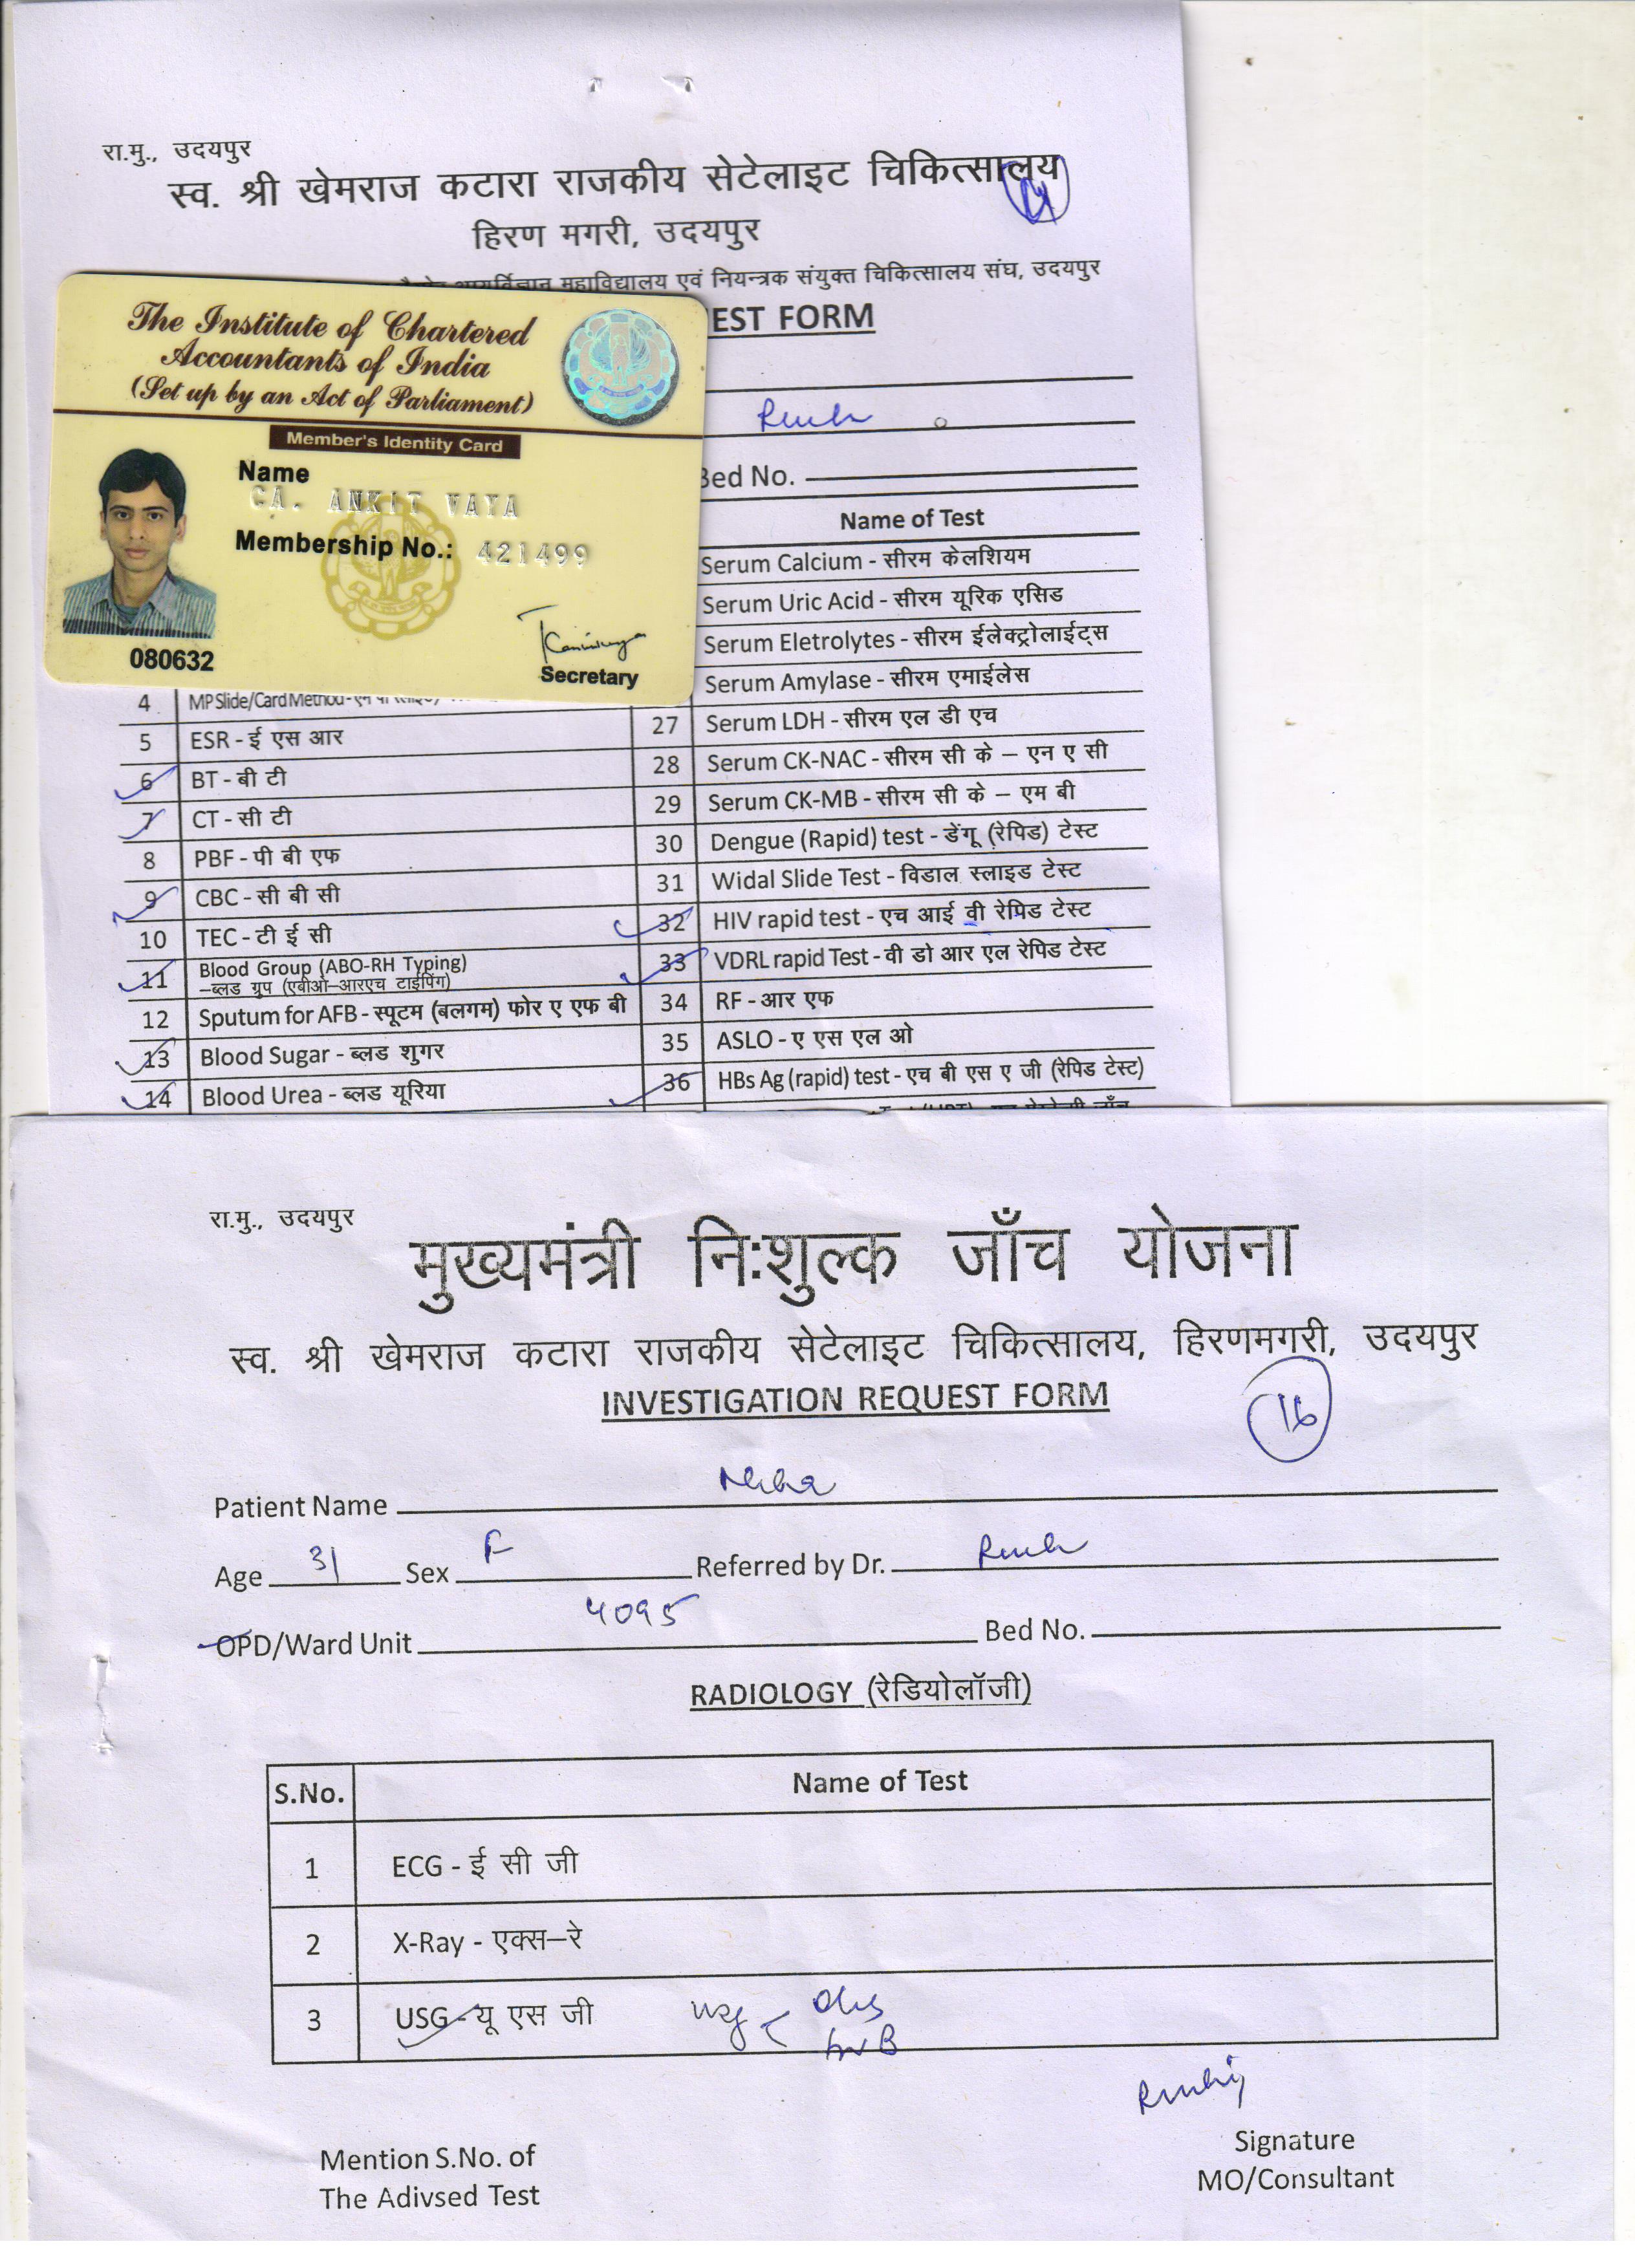 रा.मु., उदयपुर
स्व. श्री खेमराज कटारा राजकीय सेटेलाइट चिकित्सालय
हिरण मगरी, उदयपुर
महाविद्यालय एवं नियन्त्रक संयुक्त चिकित्सालय संघ, उदयपुर
EST FORM
The Institute of Chartered
Accountants of India
(Set up by an Act of Parliament)
Member's Identity Card
Name
CA. ANKIT VAYA
Membership No.: 421499
080632
Secretary
Bed No.
Name of Test
Serum Calcium - सीरम केलशियम
Serum Uric Acid - सीरम यूरिक एसिड
Serum Eletrolytes - सीरम ईलेक्ट्रोलाईट्स
Serum Amylase - सीरम एमाईलेस
4 MP Slide/Card Method
27 Serum LDH - सीरम एल डी एच
5 ESR - ई एस आर
28 Serum CK-NAC - सीरम सी के – एन ए सी
6 BT - बी टी
29 Serum CK-MB - सीरम सी के – एम बी
7 CT - सी टी
30 Dengue (Rapid) test - डेंगू (रेपिड) टेस्ट
8 PBF - पी बी एफ
31 Widal Slide Test - विडाल स्लाइड टेस्ट
9 CBC - सी बी सी
32 HIV rapid test - एच आई वी रेपिड टेस्ट
10 TEC - टी ई सी
33 VDRL rapid Test - वी डो आर एल रेपिड टेस्ट
11 Blood Group (ABO-RH Typing)
–ब्लड ग्रुप (एबीओ–आरएच टाईपिंग)
34 RF - आर एफ
12 Sputum for AFB - स्पूटम (बलगम) फोर ए एफ बी
35 ASLO - ए एस एल ओ
13 Blood Sugar - ब्लड शुगर
36 HBs Ag (rapid) test - एच बी एस ए जी (रेपिड टेस्ट)
14 Blood Urea - ब्लड यूरिया
रा.मु., उदयपुर
मुख्यमंत्री निःशुल्क जाँच योजना
स्व. श्री खेमराज कटारा राजकीय सेटेलाइट चिकित्सालय, हिरणमगरी, उदयपुर
INVESTIGATION REQUEST FORM
16
Patient Name Neha
Age 31 Sex F Referred by Dr.
OPD/Ward Unit 4095 Bed No.
RADIOLOGY (रेडियोलॉजी)
S.No. Name of Test
1 ECG - ई सी जी
2 X-Ray - एक्स–रे
3 USG - यू एस जी usg
Signature
MO/Consultant
Mention S.No. of
The Adivsed Test